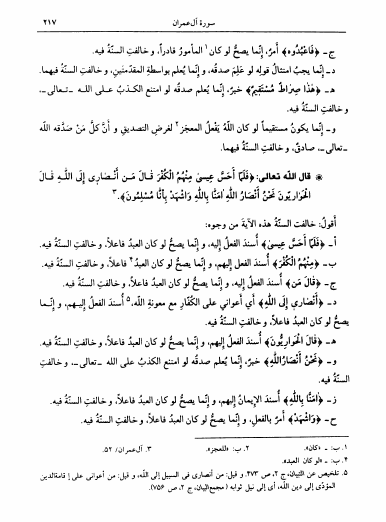 سورة آل‌عمران ٢١٧
ج ـ ﴿فَاعْبُدُوه﴾ أمرٌ، إنّما يصحُّ لو كان١ المأمور قادراً، و خالفتِ السنّةُ فيه.
د ـ إنّما يجبُ امتثالُ قوله لو عَلِمَ صدقُه، و إنّما يُعلم بواسطةِ المقدّمتين، و خالفتِ السنّةُ فيهما.
هـ ـ ﴿هَذَا صِرَاطٌ مُسْتَقِيمٌ﴾ خبرٌ، إنّما يُعلم صدقُه لو امتنع الكذبُ على الله ـ تعالى ـ،
و خالفتِ السنّةُ فيه.
و ـ إنّما يكونُ مستقيماً لو كان اللّهُ يَفْعلُ المعجزَ٢ لغرضِ التصديقِ و أنَّ كلَّ مَنْ صَدَّقه اللّه
ـ تعالى ـ، صادقٌ، و خالفتِ السنّةُ فيهما.
❊ قال اللّهُ تعالى: ﴿فَلَمَّا أَحَسَّ عِيسَىٰ مِنْهُمُ الْكُفْرَ قَالَ مَنْ أَنْصَارِي إِلَى اللَّهِ قَالَ
الْحَوَارِيُّونَ نَحْنُ أَنْصَارُ اللَّهِ آمَنَّا بِاللَّهِ وَاشْهَدْ بِأَنَّا مُسْلِمُونَ﴾.٣
أقولُ: خالفت السنّةُ هذه الآيةَ من وجوهٍ:
أ ـ ﴿فَلَمَّا أَحَسَّ عِيسَىٰ﴾ أسندَ الفعلَ إليه، و إنّما يصحُّ لو كان العبدُ فاعلاً، و خالفتِ السنّةُ فيه.
ب ـ ﴿مِنْهُمُ الْكُفْرَ﴾ أسندَ الفعلَ إليهم، و إنّما يصحُّ لو كان العبدُ٤ فاعلاً، و خالفتِ السنّةُ فيه.
ج ـ ﴿قَالَ مَنْ﴾ أسندَ الفعلَ إليه، و إنّما يصحُّ لو كان العبدُ فاعلاً، و خالفتِ السنّةُ فيه.
د ـ ﴿أَنْصَارِي إِلَى اللَّهِ﴾ أي أعواني على الكفّارِ مع معونةِ اللّهِ،٥ أسندَ الفعلَ إليهم، و إنّما
يصحُّ لو كان العبدُ فاعلاً، و خالفتِ السنّةُ فيه.
هـ ـ ﴿قَالَ الْحَوَارِيُّونَ﴾ أسندَ الفعلَ إليهم، و إنّما يصحُّ لو كان العبدُ فاعلاً، و خالفتِ السنّةُ فيه.
و ـ ﴿نَحْنُ أَنْصَارُ اللَّهِ﴾ خبرٌ، إنّما يُعلم صدقُه لو امتنع الكذبُ على الله ـ تعالى ـ، و خالفتِ
السنّةُ فيه.
ز ـ ﴿آمَنَّا بِاللَّهِ﴾ أسندَ الإيمانَ إليهم، و إنّما يصحُّ لو كان العبدُ فاعلاً، و خالفتِ السنّةُ فيه.
ح ـ ﴿وَاشْهَدْ﴾ أمرٌ بالفعل، و إنّما يصحُّ لو كان العبدُ فاعلاً، و خالفتِ السنّةُ فيه.
١. ب: ـ «كان». ٢. ب: «للمعجز». ٣. آل‌عمران/ ٥٢.
٤. ب: ـ «لو كان العبد».
٥. تلخيص عن التبيان، ج ٢، ص ٤٧٣. و قيل: من أنصاري في السبيل إلى اللّه، و قيل: من أعواني على إقامة‌الدين
المؤدّي إلى دين اللّه، أي إلى نيل ثوابه (مجمع‌البيان، ج ٢، ص ٧٥٦).